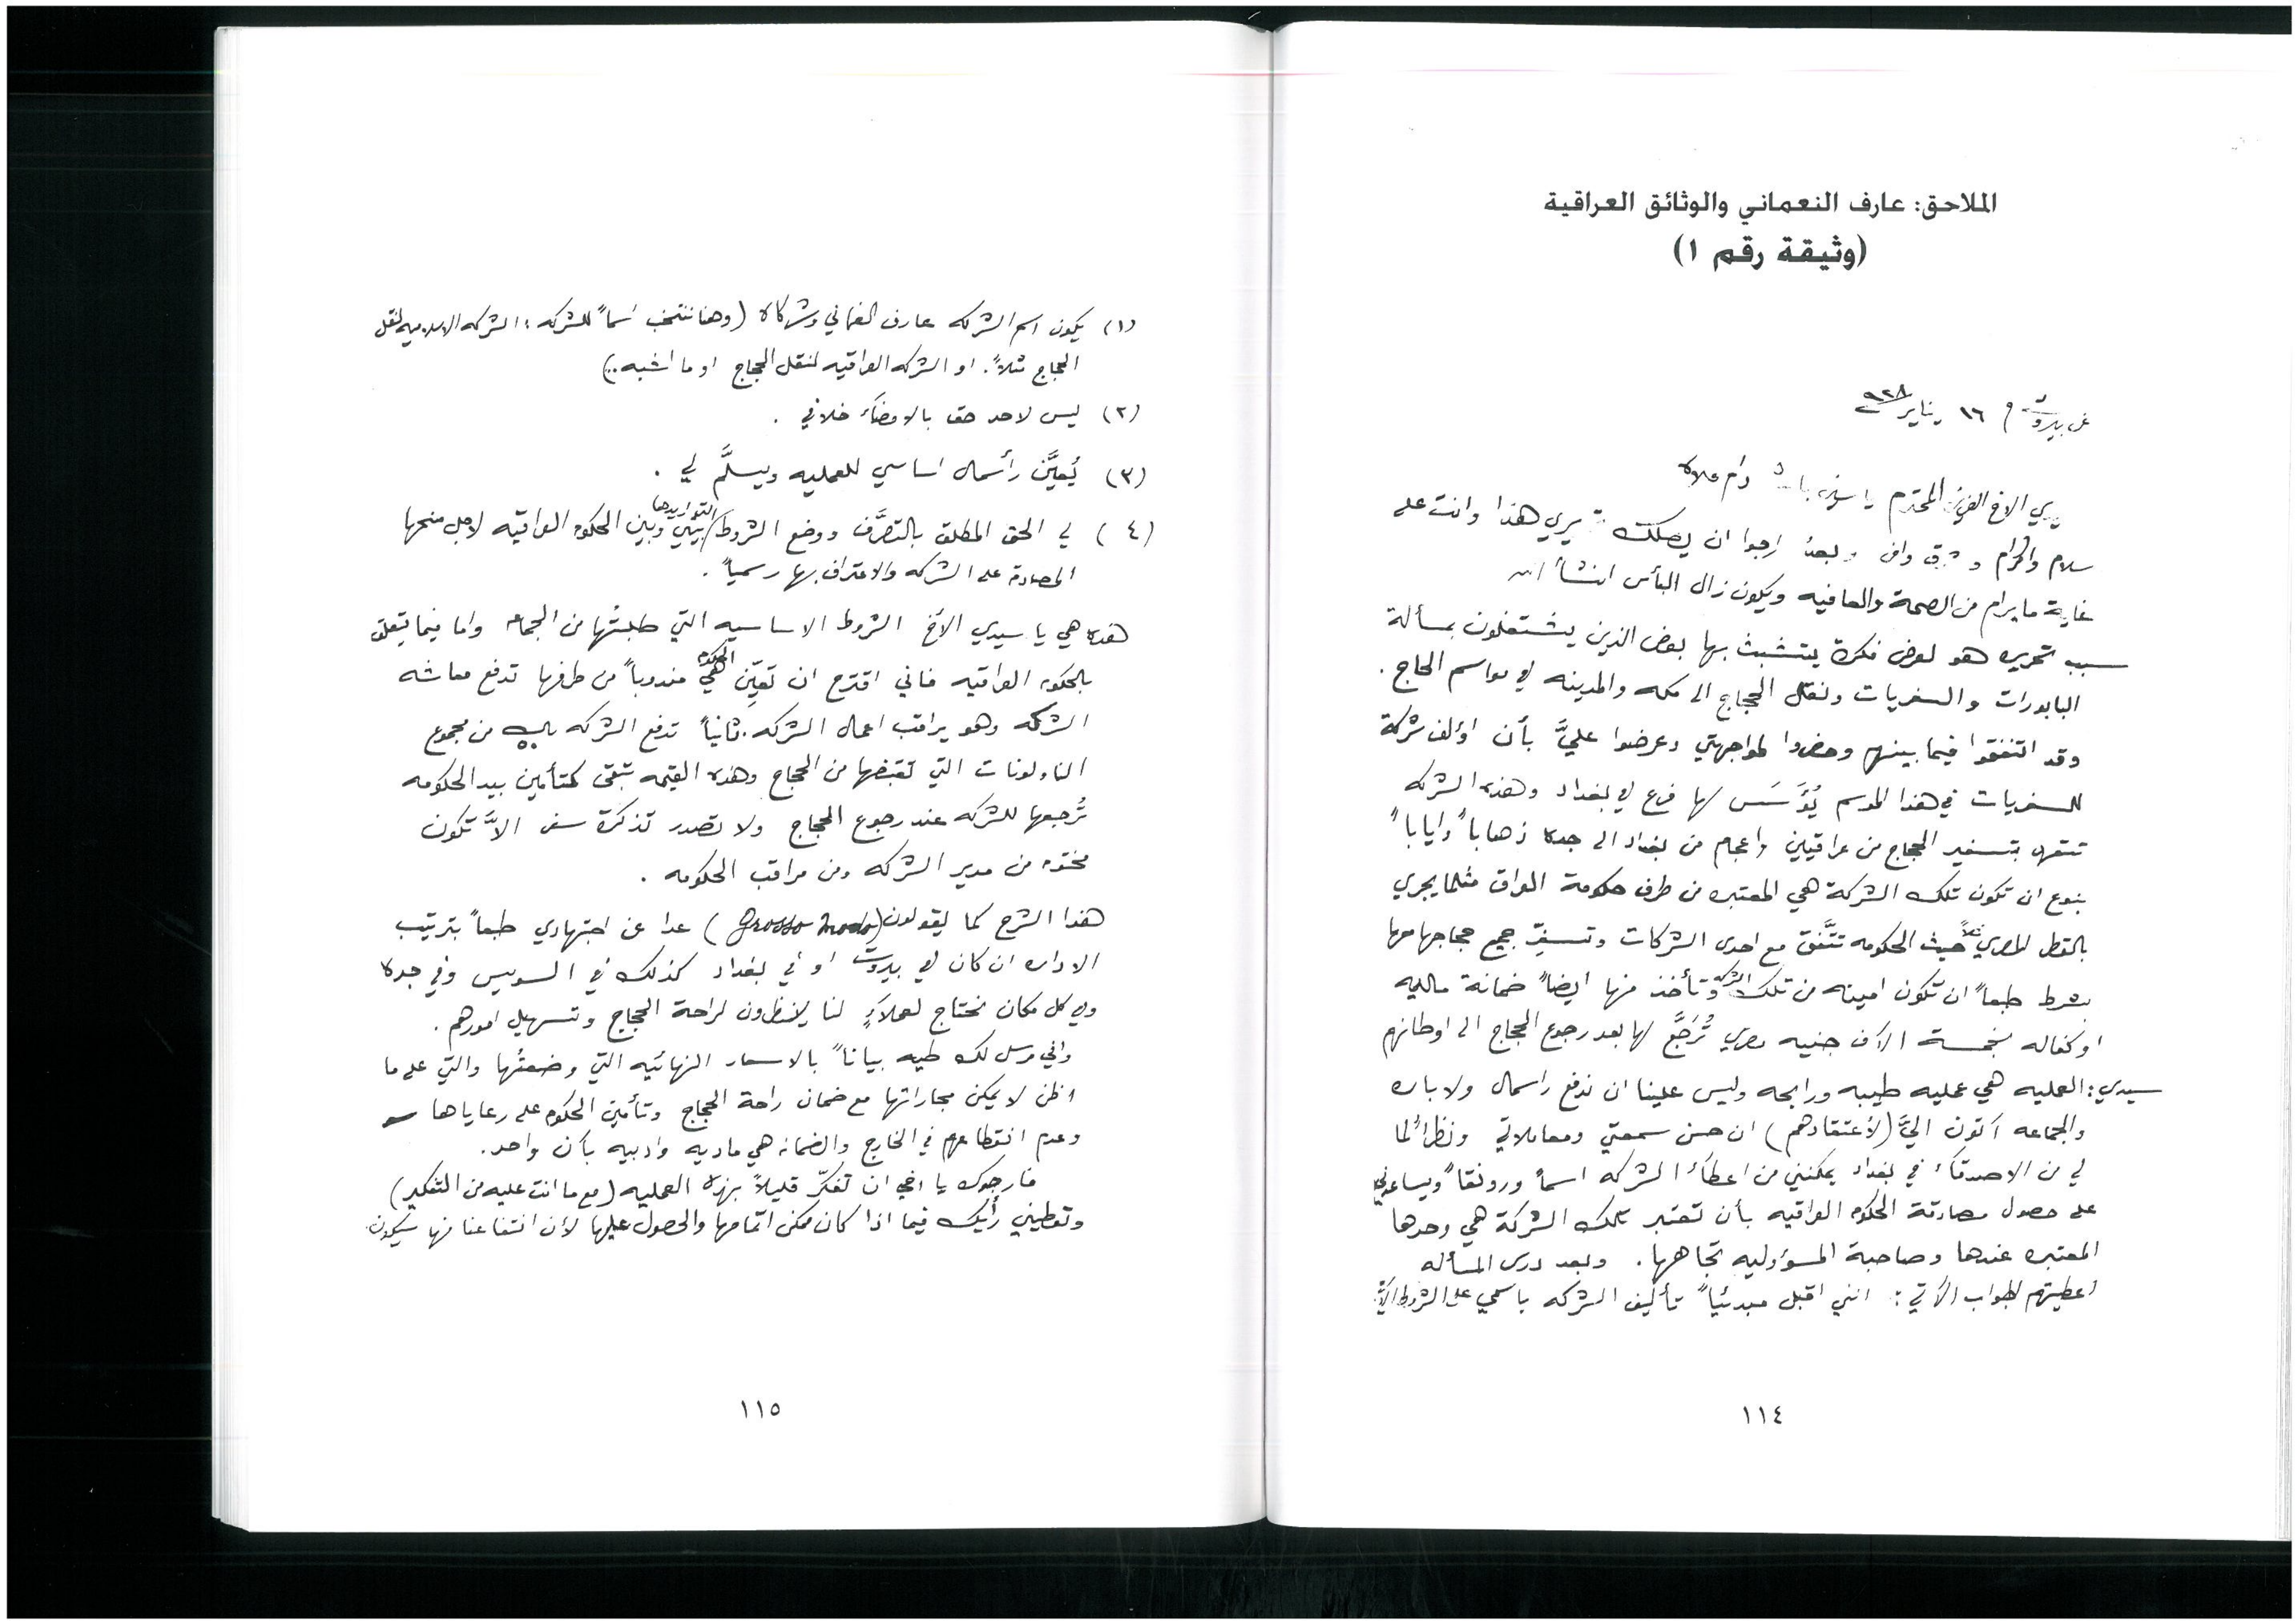 الملاحق: عارف النعماني والوثائق العراقية
(وثيقة رقم ١)
عن بيروت في ١٦ يناير ٩٢٨
سيدي الاخ العزيز المحترم ياسين باشا دام علاه
سلام واكرام وشوق وافر وبعد ارجوا ان يصلك تحريري هذا وانت على
غاية ما يرام من الصحة والعافيه ويكون زال البأس انشأ الله
سبب تحريره هو لعرض فكرة يتشبث بها بعض الذين يشتغلون بمسألة
البابورات والسفريات ونقل الحجاج الى مكه والمدينه في مواسم الحاج.
وقد اتفقوا فيما بينهم وحضروا لمواجهتي وعرضوا عليَّ بأن اؤلف شركة
للسفريات في هذا الموسم يُؤَسَس لها فرع في بغداد وهذه الشركه
تتعهد بتسفير الحجاج من عراقيين واعجام من بغداد الى جده ذهاباً واياباً
بنوع ان تكون تلك الشركة هي المعتبره من طرف حكومة العراق مثلما يجري
بالقطر المصري مثلاً حيث الحكومه تتَّفق مع احدى الشركات وتسفّر جميع حجاجها معها
بشرط طبعاً ان تكون امينه من تلك الشركه وتأخذ منها ايضاً ضمانة ماليه
او كفاله بخمسة الآف جنيه مصري تُرَجَّع لها بعد رجوع الحجاج الى اوطانهم
سيدي: العمليه هي عمليه طيبه ورابحه وليس علينا ان ندفع راسمال ولا باره
والجماعه أتون اليَّ (لأعتقادهم) ان حسن سمعتي ومعاملاتي ونظراً لما
لي من الاصدقاء في بغداد يمكنني من اعطاء الشركه اسماً ورونقاً ويساعدني
على حصول مصادقة الحكومه العراقيه بأن تعتبر تلك الشركة هي وحدها
المعتبره عندها وصاحبة المسؤوليه تجاهها. وبعد درس المسأله
اعطيتهم الجواب الآتي: انني اقبل مبدئياً تأليف الشركه باسمي على الشروط الآتية
١١٤
(١) يكون اسم الشركه عارف النعماني وشركاه (وهنا ننتخب اسماً للشركه: الشركه الاسلاميه لنقل
الحجاج مثلاً. او الشركه العراقيه لنقل الحجاج او ما اشبه..)
(٢) ليس لاحد حق بالامضاء خلافي.
(٣) يُعيَّن رأسمال اساسي للعمليه ويسلَّم لي.
(٤) لي الحق المطلق بالتصرَّف ووضع الشروط التي اريدها بيني وبين الحكومه العراقيه لاجل منحها
المصادقة على الشركه والاعتراف بها رسمياً.
هذه هي يا سيدي الأخ الشروط الاساسيه التي طلبتُها من الجماعه واما فيما يتعلق
بالحكومه العراقيه فاني اقترح ان تعيِّن هي الحكومه مندوباً من طرفها تدفع معاشه
الشركه وهو يراقب اعمال الشركه. ثانياً تدفع الشركه من مجموع
الناولونات التي تقبضها من الحجاج وهذه القيمه تبقى كتأمين بيد الحكومه
تُرجعها للشركه عند رجوع الحجاج ولا تصدر تذكرة سفر الاَّ تكون
مختومه من مدير الشركه ومن مراقب الحكومه.
هذا الشرح كما يقولون (Grosso modo) عدا عن اجتهادي طبعاً بترتيب
الاداره ان كان في بيروت او في بغداد كذلك في السويس وفي جده
وفي كل مكان نحتاج لعملاءٍ لنا ينظرون لراحة الحجاج وتسهيل امورهم.
واني مرسل لك طيه بياناً بالاسعار النهائيه التي وضعتُها والتي على ما
اظن لا يمكن مجاراتها مع ضمان راحة الحجاج وتأمين الحكومه على رعاياها
وعدم انقطاعهم في الخارج والضمانه هي ماديه وادبيه بأن واحد.
فارجوك يا اخي ان تفكّر قليلاً بهذه العمليه (مع ما انت عليه من التفكير)
وتعطيني رأيك فيما اذا كان ممكن اتمامها والحصول عليها لأن انتفاعنا منها سيكون
١١٥